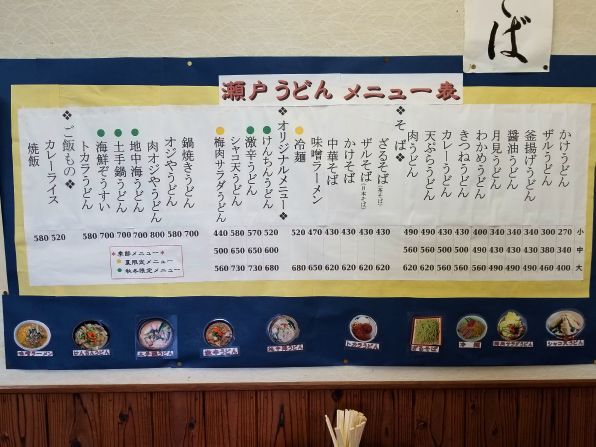 そば
瀬戸うどん メニュー表
かけうどん
ザルうどん
釜揚げうどん
醤油うどん
月見うどん
わかめうどん
きつねうどん
カレーうどん
天ぷらうどん
肉うどん
❖そば❖
ざるそば(茶そば)
ザルそば(日本そば)
かけそば
中華そば
味噌ラーメン
冷麺
❖オリジナルメニュー❖
けんちんうどん
激辛うどん
シャコ天うどん
梅肉サラダうどん
鍋焼きうどん
オジやうどん
肉オジやうどん
地中海うどん
土手鍋うどん
海鮮ぞうすい
トカラうどん
❖ご飯もの❖
カレーライス
焼飯
小
中
大
580 520 580 700 700 700 800 580 700 440 580 570 520 520 470 430 430 430 430 490 490 430 430
500 650 650 600
560 730 730 680 680 650 620 620 620 620 620 620 560 560
*季節メニュー*
夏限定メニュー
秋冬限定メニュー
味噌ラーメン
けんちんうどん
土手鍋うどん
激辛うどん
トカラうどん
ざるそば
冷麺
梅肉サラダうどん
シャコ天うどん